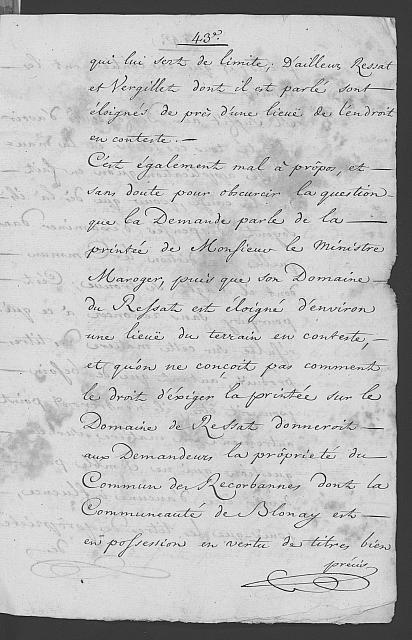 43.
qui lui sert de limite; D'ailleux Ressat
et Vergillet dont il est parlé sont —
éloignés de près d'une lieuë de l'endroit
en conteste. —
C'est également mal à prôpos, et —
sans doute pour obscurcir la question
que la Demande parle de la —
printée de Monsieur le Ministre
Maroger, puis que son Domaine —
du Ressat est éloigné d'environ
une lieuë du terrain en conteste, —
et qu'on ne concoit pas comment
le droit d'éxiger la printée sur le
Domaine de Ressat donneroit —
aux Demandeurs la prôprieté du —
Commun des Recorbannes dont la
Communeauté de Blonay est —
en possession en vertu de titres bien
précis